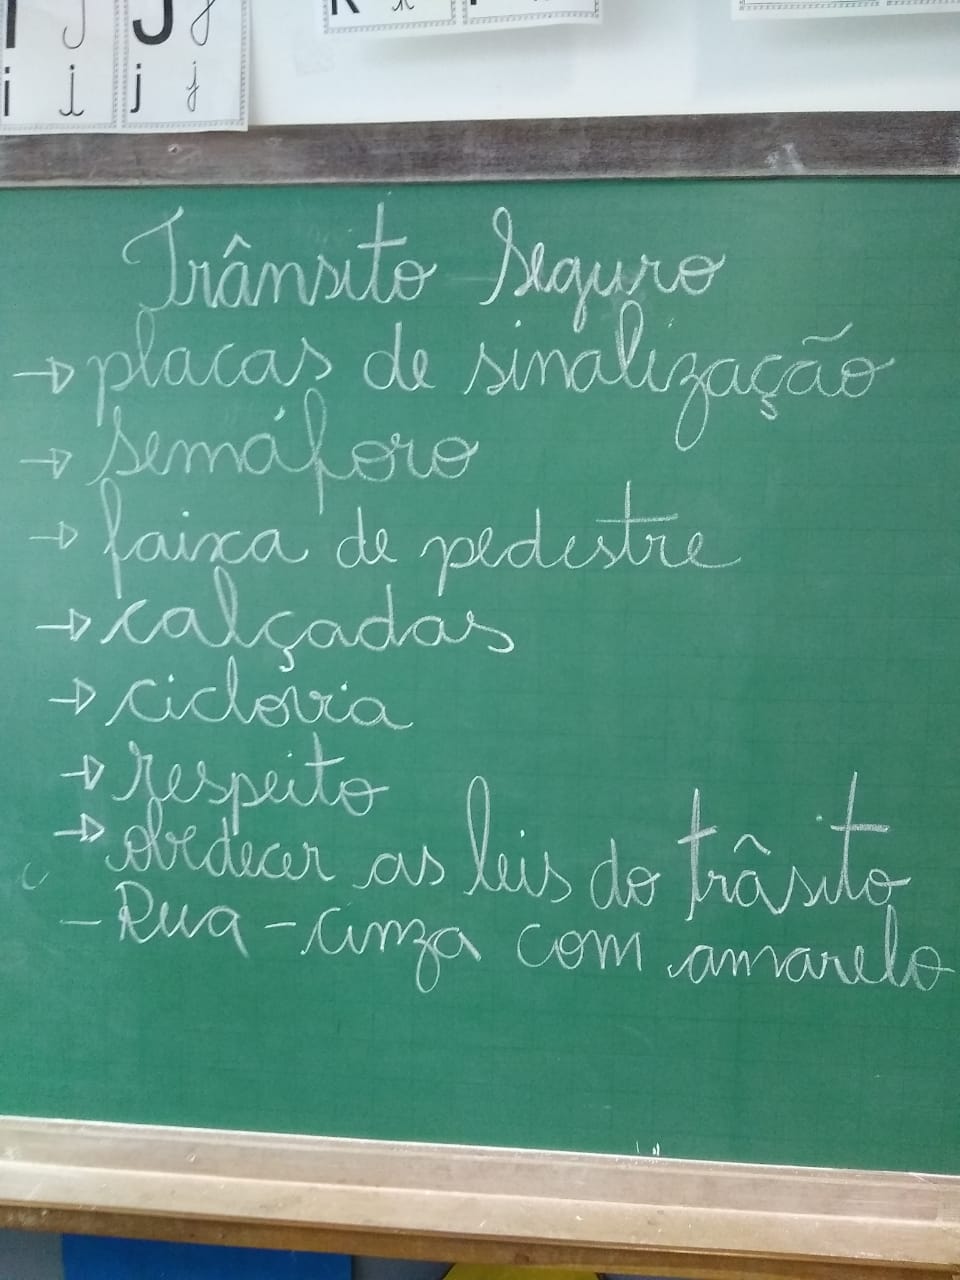 J j
i i j j
Trânsito Seguro
→ placas de sinalização
→ semáforo
→ faixa de pedestre
→ calçadas
→ ciclovia
→ respeito
→ obedecer as leis do trâsito
- Rua - cinza com amarelo